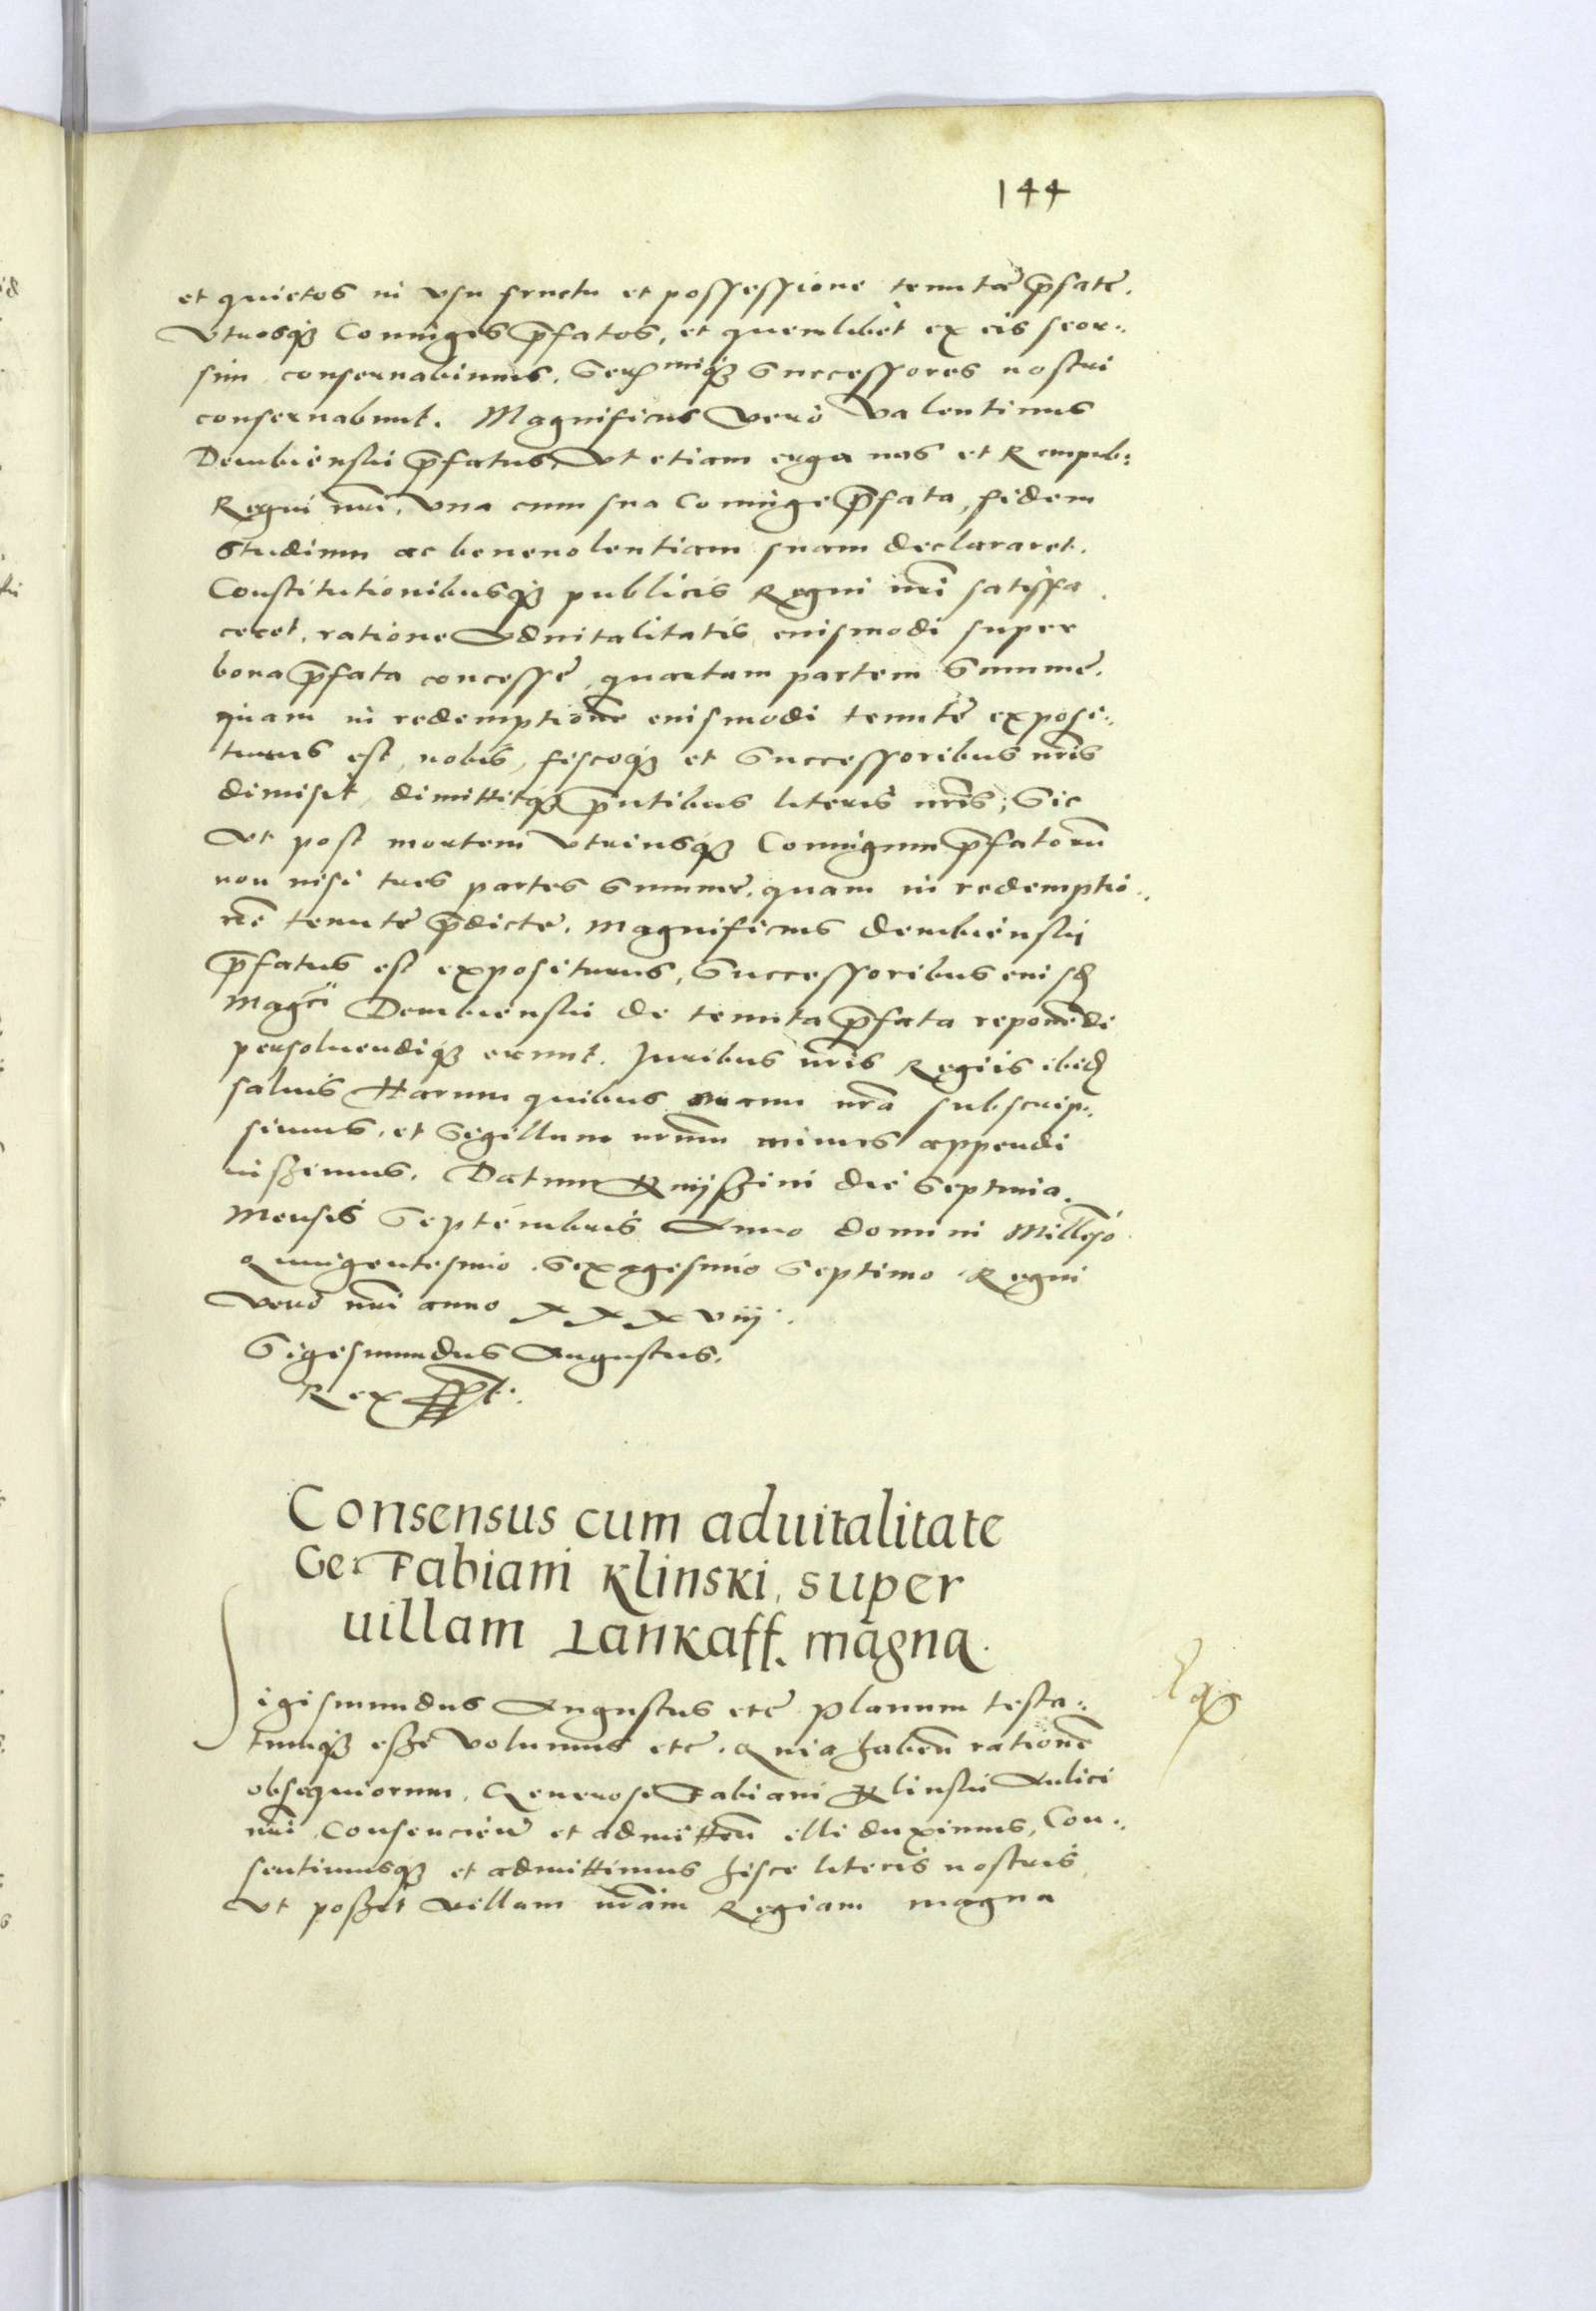 144
et quietos in vsu fructu et possessione tenutæ p̄fatę.
Vtrosq3 Coniuges p̄fatos, et quemlibet ex eis seor:
sim conseruabimus. Ser miq3 Successores nostri
conseruabunt. Magnificus vero Valentinus
Dembiensky p̄fatus, Vt etiam erga nos et Rempub:
Regni nr̄i, Vna cum sua Coniuge p̄fata, fidem
studium ac beneuolentiam suam declararet.
Constitutionibusq3 publicis Regni nr̄i satisfa
ceret, ratione Aduitalitatis, eiusmodi super
bona p̄fata concessę, quartam partem Summę.
quam in redemptione eiusmodi tenutę exposi:
turus est, nobis, fiscoq3 et Successoribus nr̄is
dimisit, dimittitq3 p̄ntibus literis nr̄is; Sic
Vt post mortem Vtriusq3 Coniugum p̄fatorū
non nisi tres partes Summę, quam in redemptio:
nē tenutę p̄dictę, Magnificus Dembiensky
p̄fatus est expositurus, Successoribus eiusd
Magci Dembiensky de tenuta p̄fata reponēdę
persoluendęq3 erunt. Juribus nr̄is Regiis ibid
saluis Harum quibus manu nr̄a subscrip:
simus, et Sigillum nrūm minus appendi
iussimus. Datum Knijssini die Septima
Mensis Septembris Anno domini Millesio
Quingentesimo Sexagesimo Septimo Regni
vero nr̄i anno XXXVIIJ.
Sigesmundus Augustus.
Rex sspt.
Consensus cum aduitalitate
Ge: Fabiani Klinski, super
uillam Lankaff. magna.
Sigismundus Augustus etc̄ Planum testa:
tumq3 esse volumus etc̄. Quia habeñ rationē
obsequiorum, Generosi Fabiani Klinsky Aulici
nr̄i, Consencieñ et admitteñ illi duximus, Con:
sentimusq3 et admittimus hisce literis nostris
Vt possit villam nrām Regiam magna